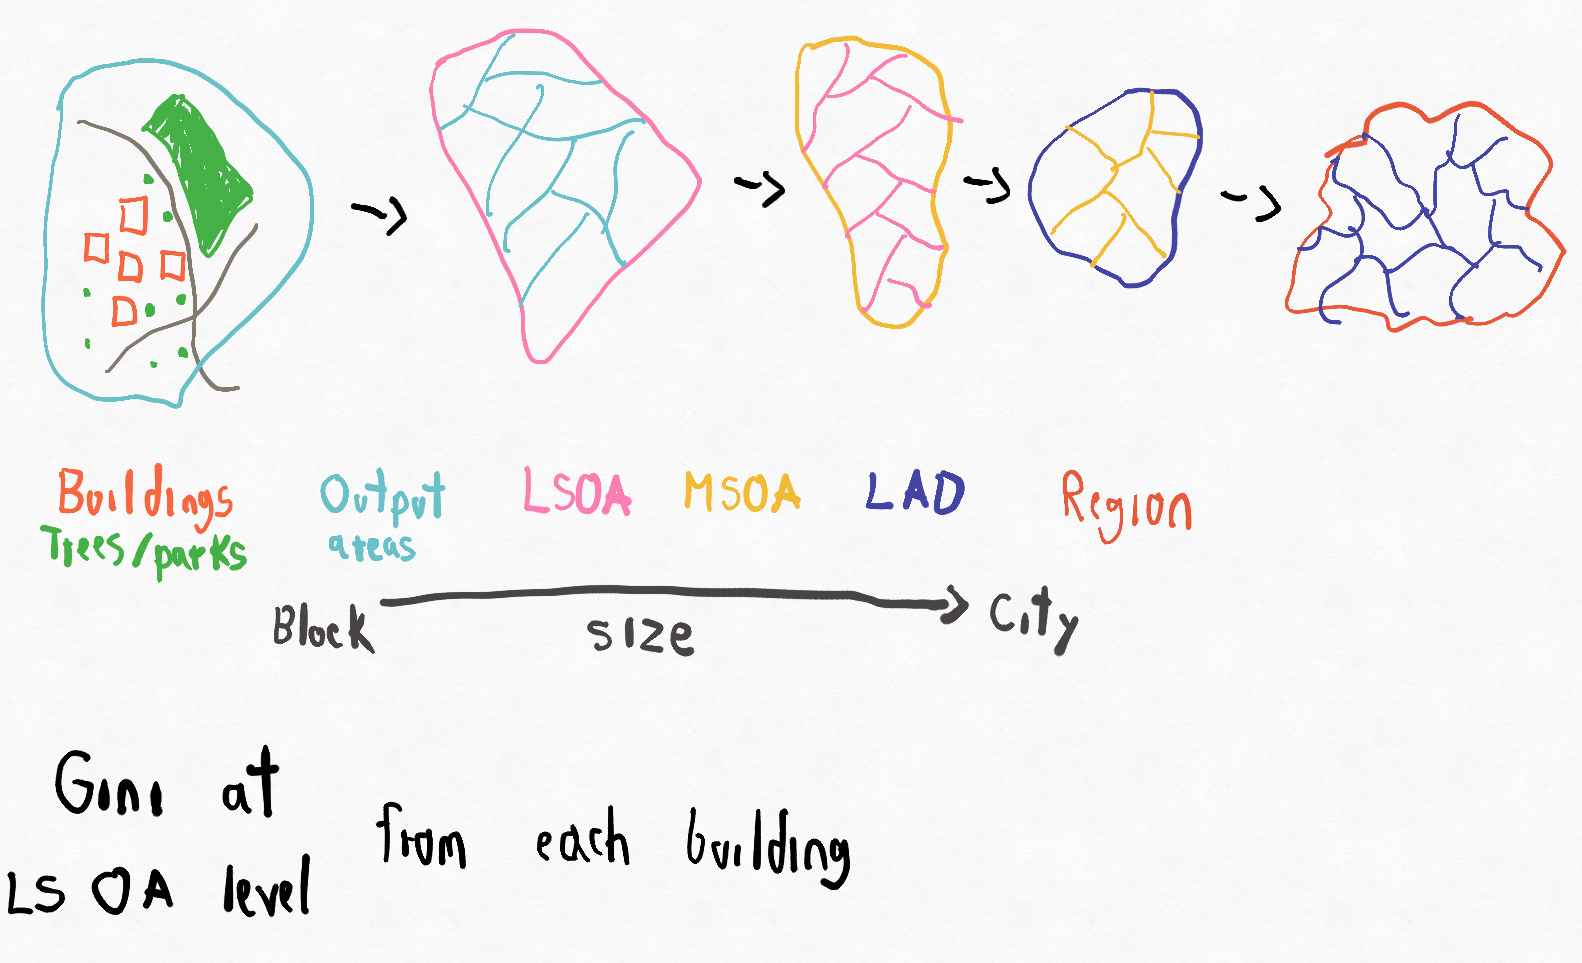 Buildings
Trees/parks
Output
areas
LSOA
MSOA
LAD
Region
Block
size
City
Gini at
LSOA level
from each building